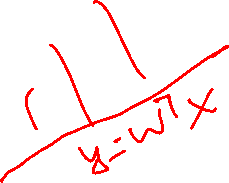 y=w^T x